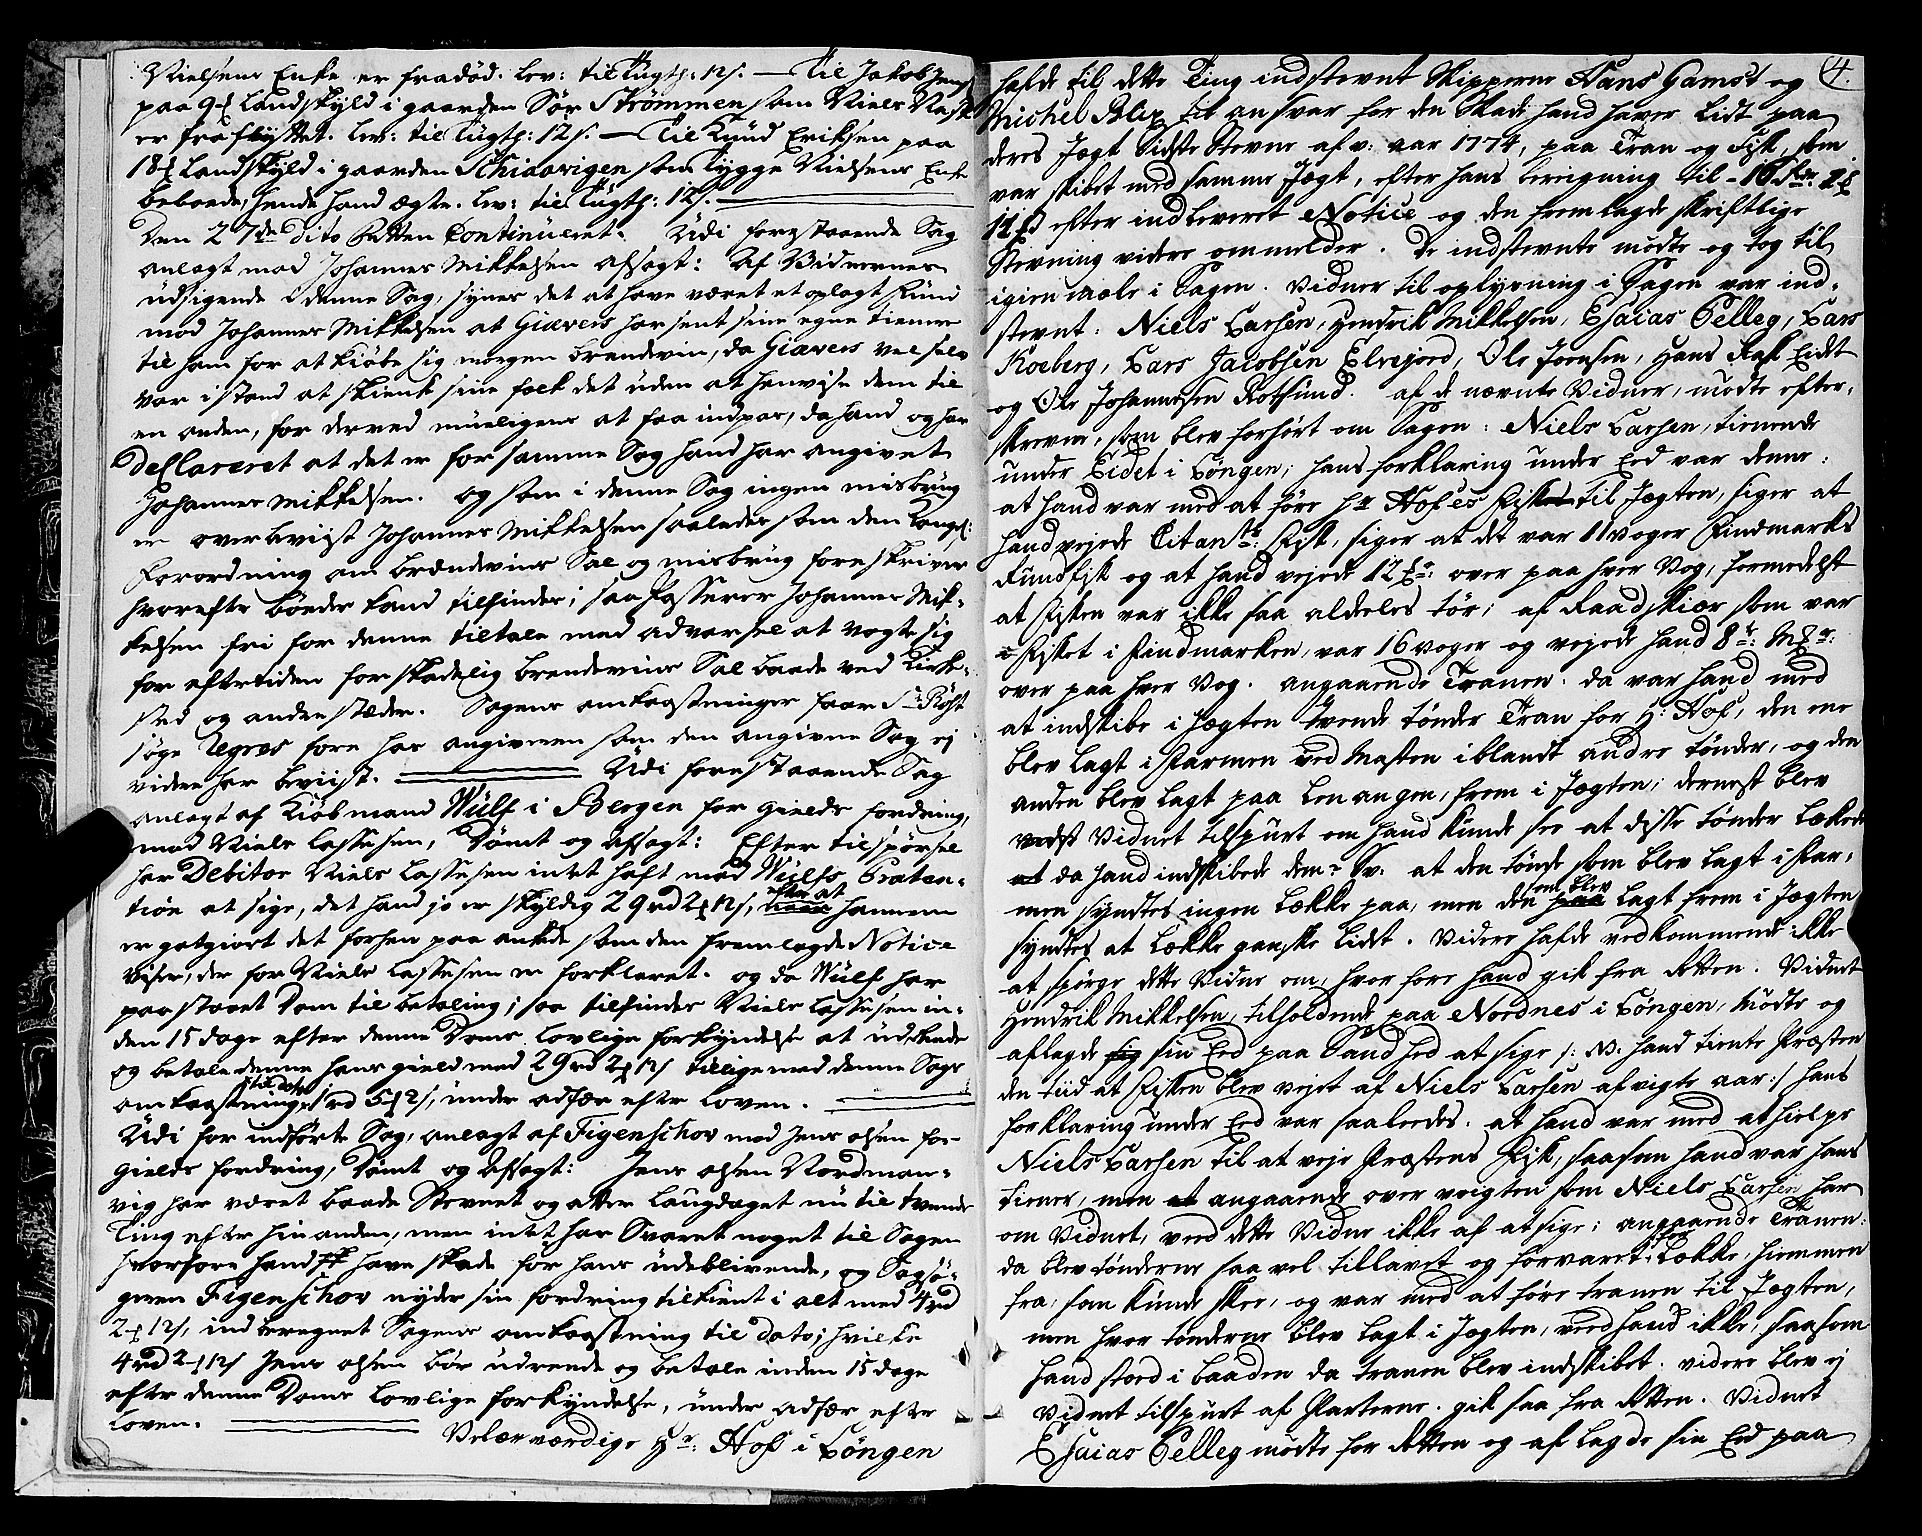 Nielsens Enke er fradöd. lev: til Tugth: 12 s. — Til Jakob Jens
paa 9 £ Landskyld i gaarden Sör Strömmen som Niels Rask
er fraflyttet. lev: til Tugth: 12 s. — Til Knud Eriksen paa
18 £ Landskyld i gaarden Schidavigen som Tygge Nielsens Enke
beboede, hende hand ægte. lev: til Tugth: 12 s.
Den 27de dito Retten Continueret. Udi forestaaende Sag
anlagt mod Johannes Mikkelsen afsagt: Af Vidnernes
udsigende i denne Sag, synes det at have været et oplagt Fund
mod Johannes Mikkelsen at Giævers har sent sine egne tienere
til ham for at kiöbe sig nogen brendevin, da Giævers vel selv
var i stand at skienk sine folk det uden at henvise dem til
en anden, for derved mueligens at faa indpas, da hand og har
Declareret at det er for samme Sag hand har angivet
Johannes Mikkelsen. og som i denne Sag ingen misbrug
er overbeviist Johannes Mikkelsen saaledes som den kongel:
Forordning om brændeviins Sal og misbrug foreskriver
hvorefter böeder kand tilfindes; saa Passerer Johannes Mik-
kelsen fri for denne tiltale med advarsel at vogte sig
for eftertiden for skadelig brendeviins Sal baade ved Kirke-
sted og andre stæder. Sagens omkaastninger faar Sr Röst
söge Regres fore hos angiveren som den angivne Sag ej
videre har beviist. Udi forestaaende Sag
anlagt af Kiöbmand Wulf i Bergen for gields fordring,
mod Niels Lassesen, Dömt og afsagt: Efter tilspörsel
har Debitor Niels Lassesen intet haft mod Wulfs Præten-
tion at sige, det hand jo er skyldig 29 rd 2 £ 12 s, efter at hannem
er gotgiort det forhen paa ankede som den fremlagde Notice
viser, der for Niels Lassesen er forklaret. og da Wulf har
paastaaet Dom til betaling; saa tilfindes Niels Lassesen in-
den 15 dage efter denne Doms lovlige forkyndelse at udrede
og betale denne hans gield med 29 rd 2 £ 12 s tillige med denne Sags
omkaastninger til dato 1 rd 5 £ 2 s, under adfær efter Loven.
Udi for indförte Sag, anlagt af Figenschov mod Jens Olsen for
gields fordring, Dömt og afsagt: Jens Olsen Nordman-
vig har været baade Stevnet og atter laugdaget nu til tvende
Ting efter hinanden, men intet har Svaret noget til Sagen
hvorfore hand have skade for hans udeblivende, og Sagsö-
geren Figenschov nyder sin fordring tilkient i alt med 4 rd
2 £ 12 s, indberegnet Sagens omkaastning til dato; hvilke
4 rd 2 £ 12 s Jens Olsen bör udrede og betale inden 15 dage
efter denne Doms lovlige forkyndelse, under adfær efter
Loven.
Velærværdige Hr: Hof i Löngen
4.
hafde til dette Ting indstevnt Skipperne Hans Gamst og
Michel Blix til ansvar for den skade hand haver lidt paa
deres Jægt sidste Stevne af v: aar 1774, paa Tran og Fisk, som
var skibet med samme Jægt, efter hans beregning til
efter indleveret Notice og den fremlagde skriftlige
Stevning videre ommelder. De indstevnte mödte og tog til
igienmæle i Sagen. Vidner til oplysning i Sagen var ind-
stevnt: Niels Larsen, Hendrik Mikkelsen, Esaias Pelleg, Lars
Koeberg, Lars Jacobsen Elvejord, Ole Joensen, Hans Rask Eidet
og Ole Johannesen Rotsund. af de nævnte Vidner, mödte efter-
skrevne, som blev forhört om Sagen: Niels Larsen, tienende
under Eidet i Löngen; hans forklaring under Eed var denne:
at hand var med at före Hr Hofes Fisk til Jægten, siger at
hand vejede Citantens Fisk, siger at det var 11 voger Findmarks
Rundfisk og at hand vejede 12 £r: over paa hver Vog, formedelst
at Fisken var ikke saa aldeles tör; af Raadskiær som var
Fisket i Findmarken, var 16 voger og vejede hand 8te: M£r:
over paa hver Vog. angaaende Tranen. da var hand med
at indskibe i Jægten tvende tönder Tran for H: Hof, den ene
blev lagt i Farmen ved Masten iblandt andre tönder, og den
anden blev lagt paa Lenangen, frem i Jægten; dernest blev
Vidnet tilspurt om hand kunde see at disse tönder lækede
da hand indskibede dem? Sv: at den tönde som blev lagt i Far-
men syndtes ingen Lække paa, men den som blev lagt frem i Jægten
syndtes at Lække ganske lidt. Videre hafde vedkommende ikke
at spörge dette Vidne om, hvor fore hand gik fra Retten. Vidnet
Hendrik Mikkelsen, tilholdende paa Nordnes i Löngen, mödte og
aflagde sin Eed paa Sandhed at sige /: NB. hand tiente Præsten
den tiid at Fisken blev vejet af Niels Larsen afvigte aar :/ hans
forklaring under Eed var saaledes. at hand var med at hielpe
Niels Larsen til at veje Præstens Fisk, saasom hand var hans
tiener, men angaaende over veigten som Niels Larsen har
om Vidnet, veed dette Vidne ikke af at sige; angaaende Tranen:
da blev tönderne saa vel tillavet og forvaret for Lække, hiemmen
fra, som kunde skee, og var med at före tranen til Jægten,
men hvor tönderne blev lagt i Jægten, veed hand ikke, saasom
hand stoed i baaden da tranen blev indskibet. videre blev ej
Vidnet tilspurt af Parterne. gik saa fra Retten. Vidnet
Esaias Pelleg mödte for Retten og aflagde sin Eed paa